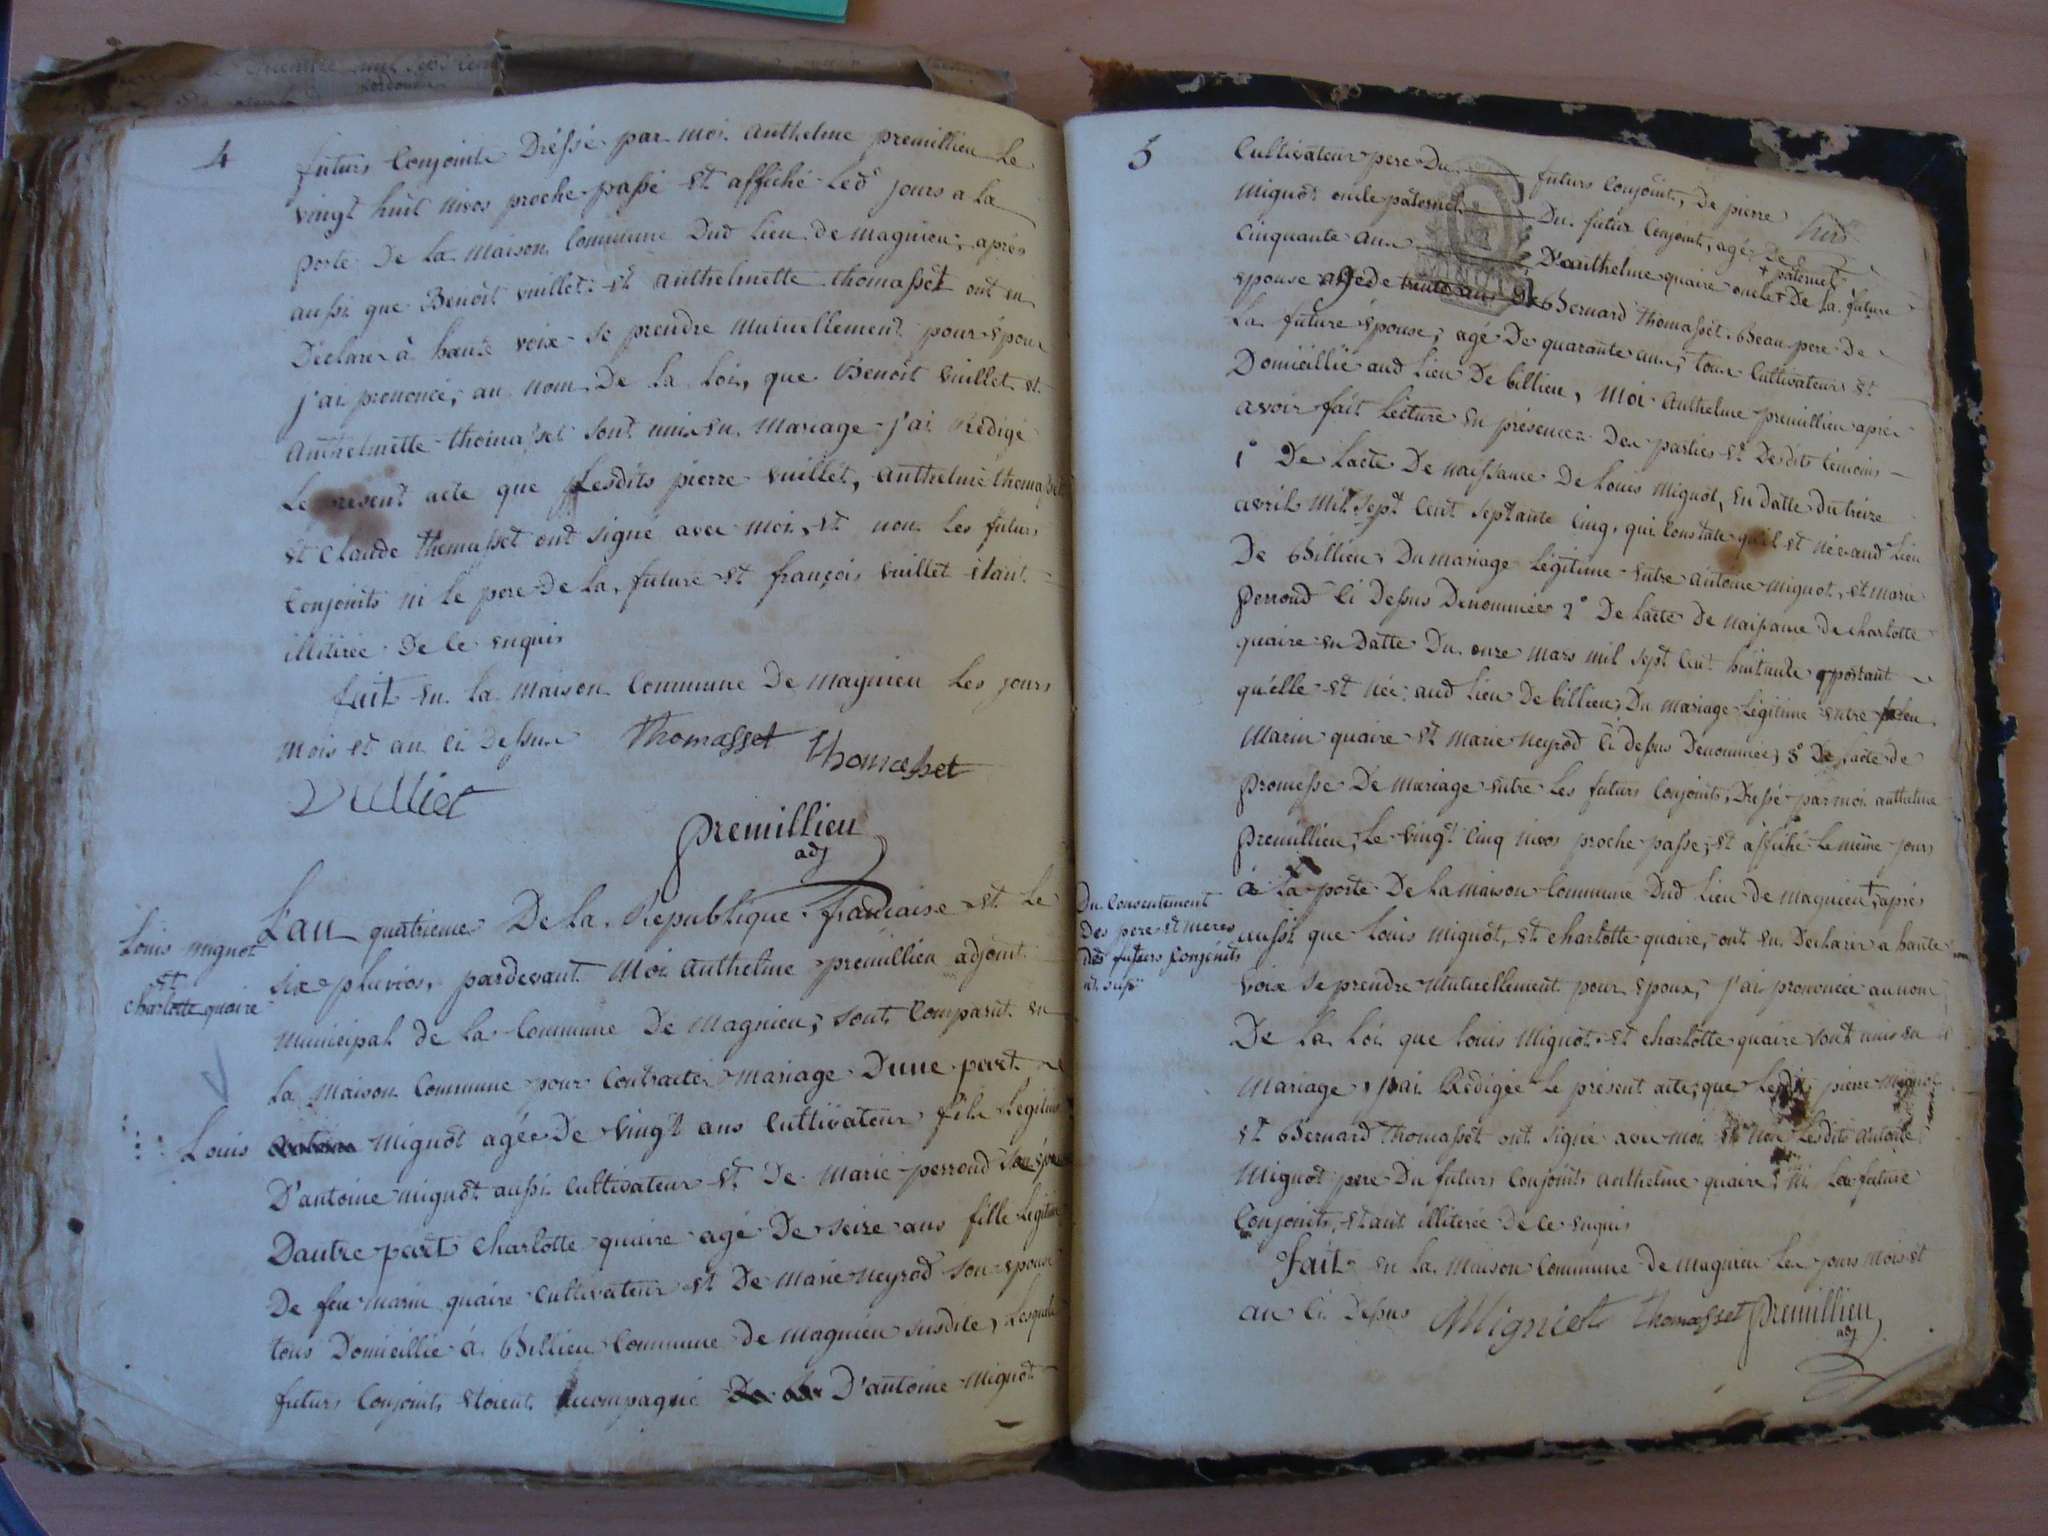 4
futurs Conjoints Dréssé par moi Anthelme premillieu Le
vingt huit nivos proche passé et affiché Led jours a la
porte De la maison Commune Dud Lieu de magnieu, après
aussi que Benoit vuillet et anthelmette thomasset ont en
Déclarer à haute voix se prendre mutuellement pour époux
j'ai prononcé, au nom De la Loi, que Benoit vuillet et
anthelmette thomasset sont unis en mariage j'ai Rédigé
Le présent acte que Lesdits pierre vuillet, anthelme thomasset
et Claude thomasset ont signé avec moi et non Les futurs
Conjoints ni le pere De la future et françois vuillet étant
illitirée De Ce enquis
fait en la maison Commune De magnieu Les jours
mois et an Ci Dessus Thomasset Thomasset
Vulliet
premillieu
adj
Louis mignot
et
Charlotte quaire
L'an quatrieme De la Republique française et Le
six pluvios, pardevant Moi Anthelme premillieu adjoint
municipal de la Commune De Magnieu, sont Comparut en
La maison Commune pour Contracter mariage D'une part
Louis mignot agée De vingt ans Cultivateur fils Legitime
D'antoine mignot aussi Cultivateur et De marie perroud son épouse
Dautre part Charlotte quaire agé De seize ans fille Legitime
De feu marin quaire Cultivateur et De marie neyrod son epouse
tous Domicillié à Billieu Commune de magnieu susdite, Lesquels
futurs Conjoints etoient accompagné D'antoine Mignot
5
Cultivateur pere Du futurs Conjoint, De pierre
mignot oncle paternel Du futur Conjoint, agé De
Cinquante ans D'anthelme quaire oncle + De la future
+ paternel
epouse agé de trente ans De Bernard thomasset Beau pere De
La future épouse, agé De quarante ans, tous Cultivateurs et
Domicillié aud Lieu De billieu, Moi Anthelme premillieu après
avoir fait Lecture en présence Des parties et Desdits témoins
1° De Lacte De naissance De Louis Mignot, en Datte Du treize
avril mil sept Cent septante Cinq, qui Constate qu'il et née aud Lieu
De Billieu, Du mariage Légitime entre antoine mignot, et marie
Perroud Ci Dessus Denommée 2° De Lacte De naissance de charlotte
quaire en Datte Du onze mars mil sept Cent huitante portant
qu'elle et née aud Lieu De billieu, Du mariage Légitime entre feu
Marin quaire et marie neyrod Ci dessus Denommée, 3° De Lacte de
Promesse De mariage entre Les futurs Conjoints, Dressé par moi anthelme
premillieu, Le vingt Cinq nivos proche passe, et affiché Le même jours
à La porte De La maison Commune Dud Lieu de magnieu + après
Du Consentement
Des pere et meres
des futurs Conjoints
aussi que Louis mignot, et charlotte quaire, ont en Declarer a haute
voix se prendre Mutuellement pour epoux, j'ai prononcée au nom
De La Loi que Louis Mignot et charlotte quaire sont unis en
mariage, j'ai Rédigée Le présent acte, que Lesdits pierre mignot
et Bernard thomasset ont signé avec moi et non Lesdits antoine
Mignot pere Du futurs Conjoints anthelme quaire, ni La future
Conjoints, etant illitirée De ce enquis
fait en La maison Commune de magnieu Les jours mois et
an Ci Dessus Migniet Thomasset premillieu
adj